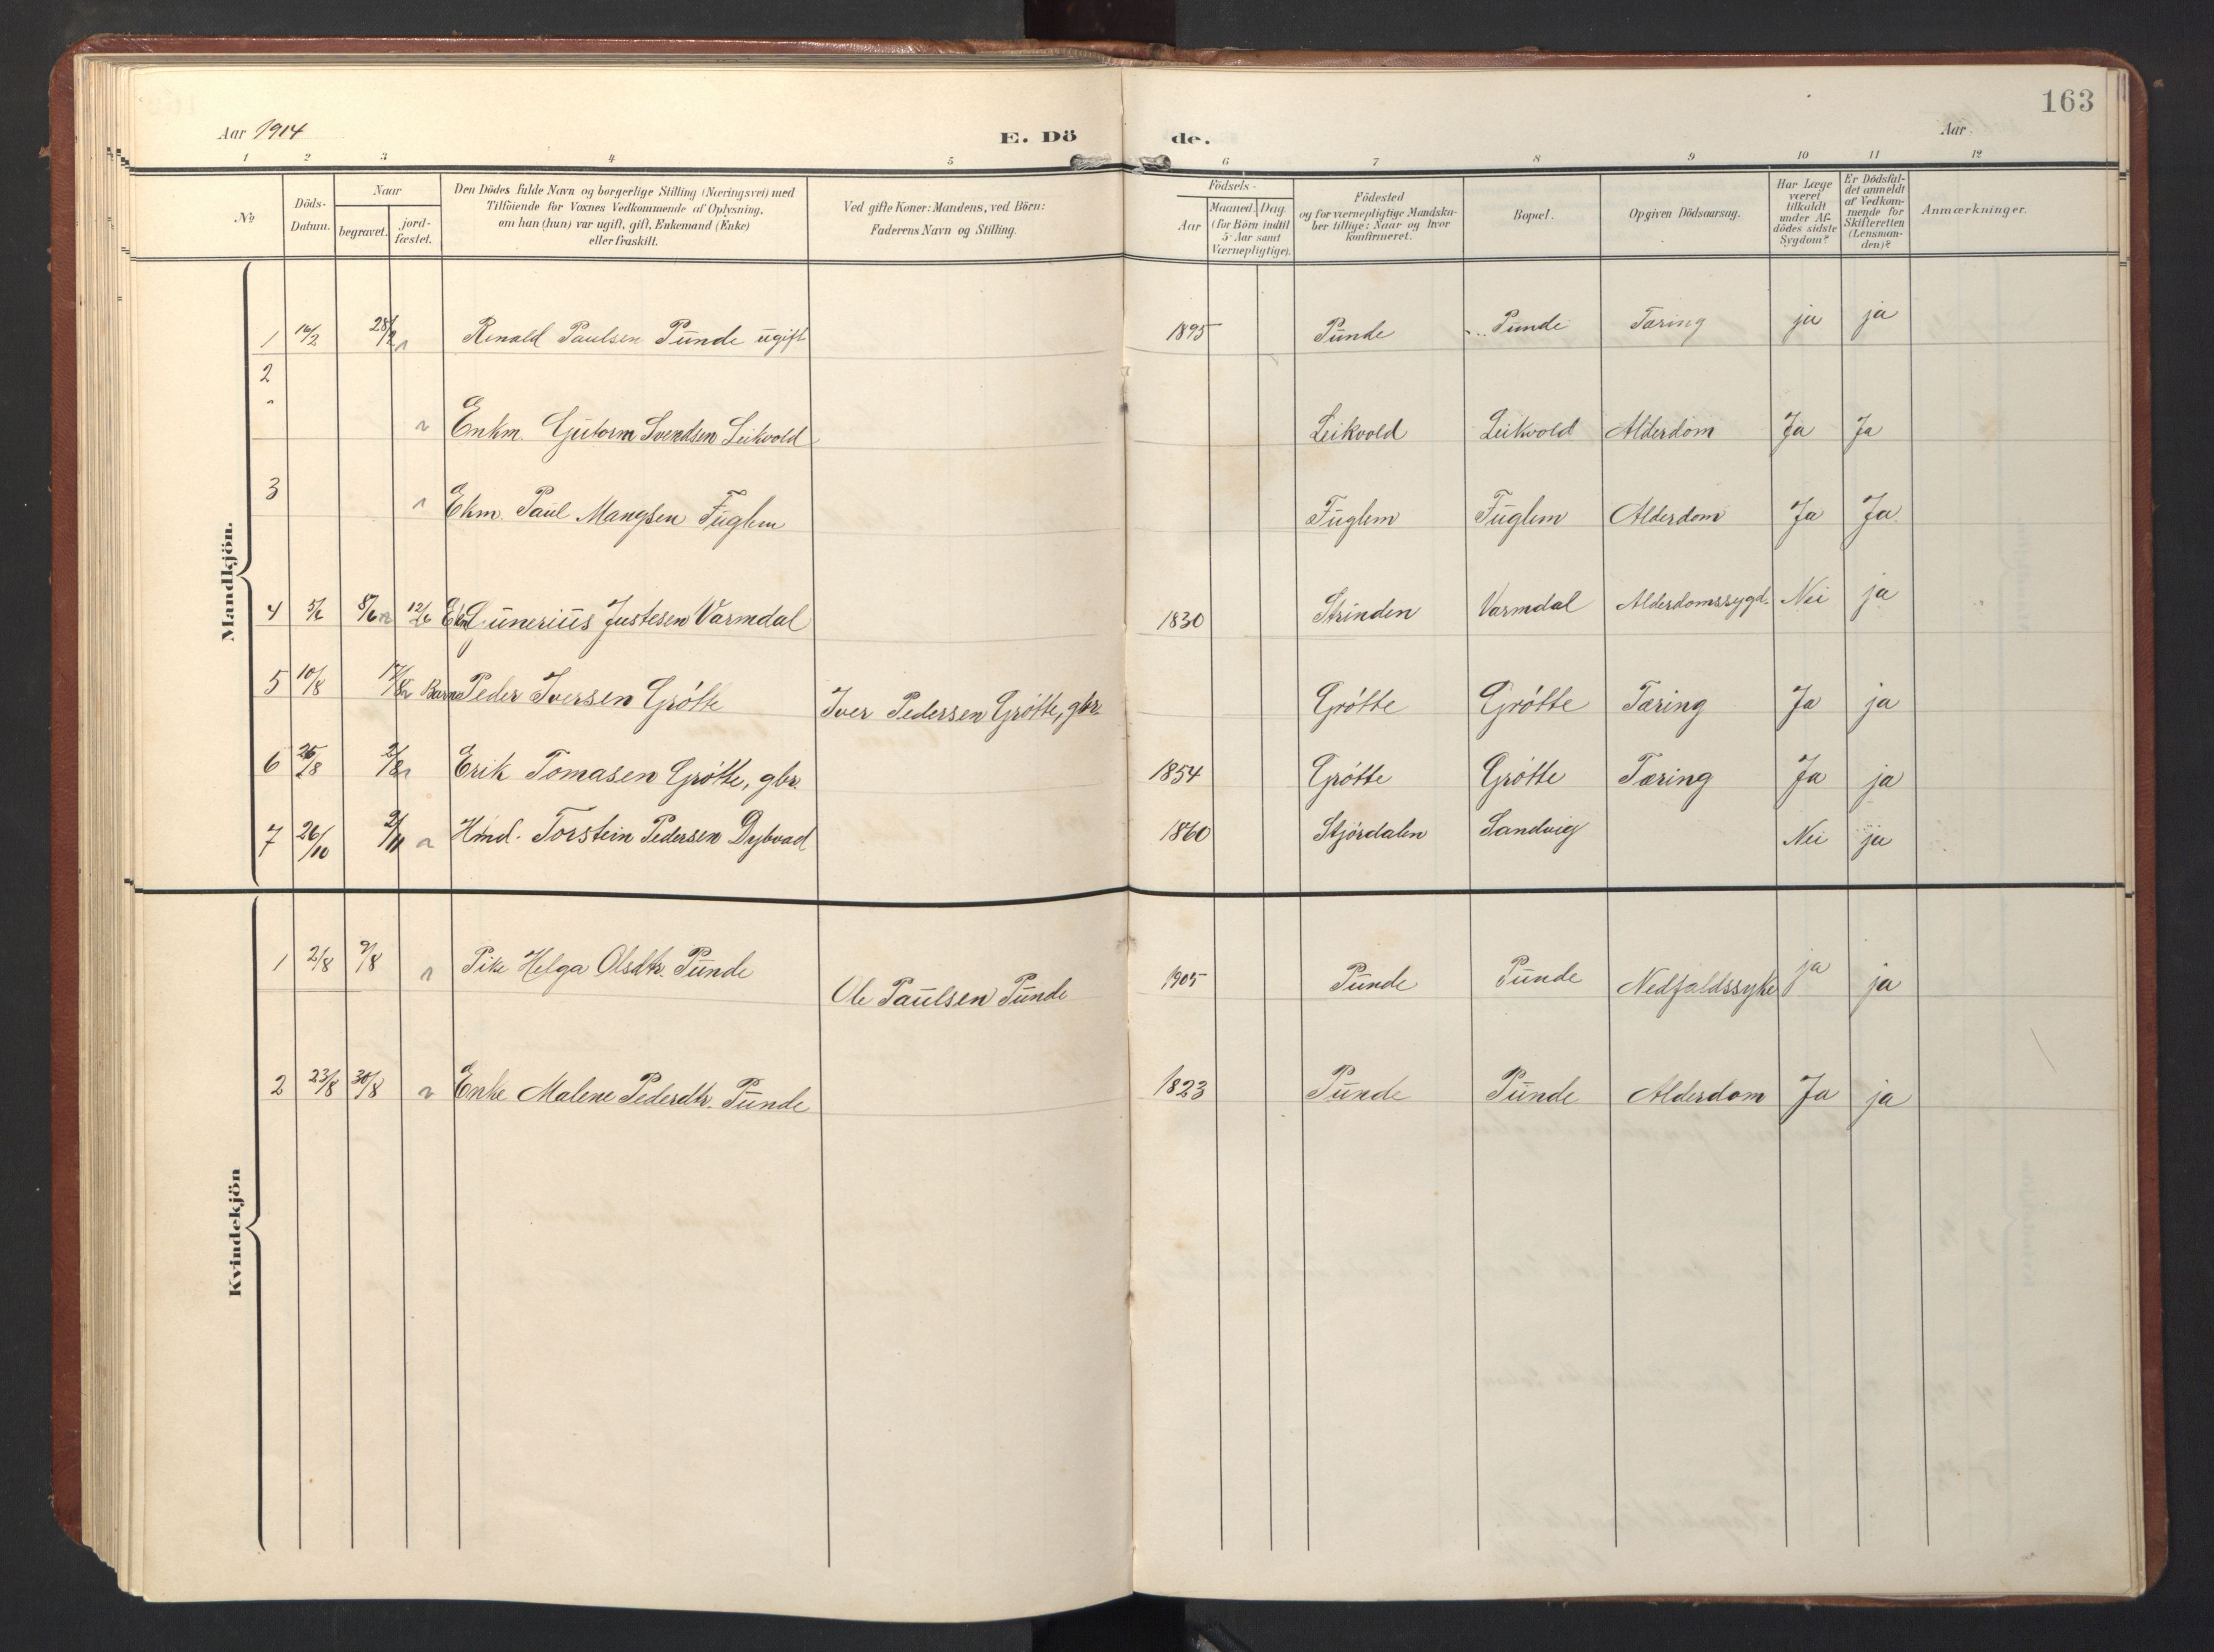 163
Aar 1914
E. Dö de.
Aar
1 2 3 4 5 6 7 8 9 10 11 12
No
Döds-
Datum.
Naar
begravet.
jord-
fæstet.
Den Dödes fulde Navn og borgerlige Stilling (Næringsvei) med
Tilföiende for Voxnes Vedkommende af Oplysning,
om han (hun) var ugift, gift, Enkemand (Enke)
eller fraskilt.
Ved gifte Koner: Mandens, ved Börn:
Faderens Navn og Stilling.
Födsels-
Aar
Maaned. Dag.
(for Börn indtil
5 Aar samt
Værnepligtige).
Födested
og for værnepligtige Mandska-
ber tillige: Naar og hvor
konfirmeret.
Bopæl.
Opgiven Dödsaarsag.
Har Læge
været
tilkaldt
under Af-
dödes sidste
Sygdom?
Er Dödsfal-
det anmeldt
af Vedkom-
mende for
Skifteretten
(Lensman-
den)?
Anmærkninger.
Mandkjön.
1 16/2 28/2 Renald Paulsen Punde ugift 1895 Punde Punde Tæring ja ja
2
Enkm. Gutorm Svendsen Leikvold Leikvold Leikvold Alderdom Ja Ja
3 Ekm. Paul Mangsen Fuglem Fuglem Fuglem Alderdom Ja Ja
4 5/6 8/6 12/6 Gunerius Justesen Varmdal 1830 Strinden Varmdal Alderdomssygd. Nei ja
5 10/8 17/8 Barn Peder Iversen Grótte Iver Pedersen Grótte, gbr. Grótte Grótte Tæring Ja ja
6 25/8 2/8 Erik Tomasen Grótte, gbr. 1854 Grótte Grótte Tæring Ja ja
7 26/10 2/11 Hmd. Torstein Pedersen Dybvad 1860 Stjórdalen Sandvig Nei ja
Kvindekjön
1 2/8 9/8 Pike Helga Olsdtr. Punde Ole Paulsen Punde 1905 Punde Punde Nedfaldssyke ja ja
2 23/8 30/8 Enke Malene Pedersdtr. Punde 1823 Punde Punde Alderdom Ja ja